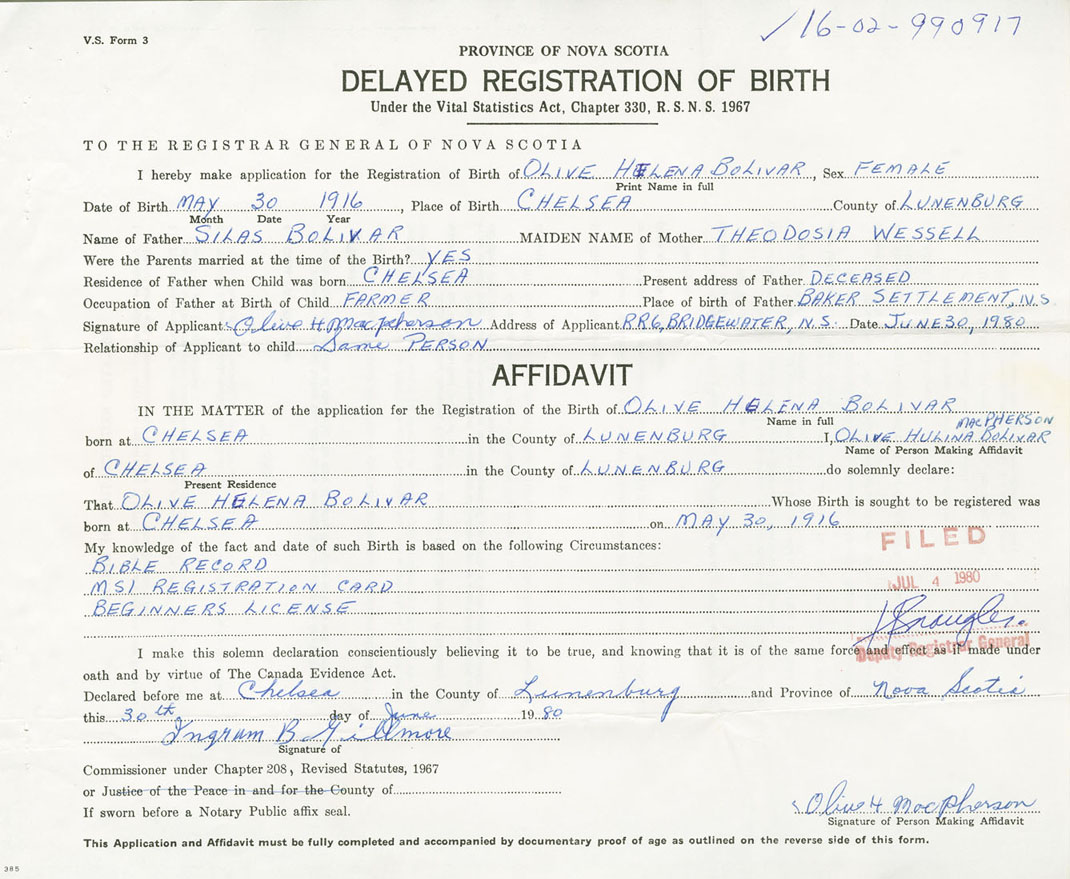 V.S. Form 3
✓16-02-990917
PROVINCE OF NOVA SCOTIA
DELAYED REGISTRATION OF BIRTH
Under the Vital Statistics Act, Chapter 330, R.S.N.S. 1967
TO THE REGISTRAR GENERAL OF NOVA SCOTIA
I hereby make application for the Registration of Birth of OLIVE HELENA BOLIVAR, Sex FEMALE
Print Name in full
Date of Birth MAY 30 1916, Place of Birth CHELSEA County of LUNENBURG
Month Date Year
Name of Father SILAS BOLIVAR MAIDEN NAME of Mother THEODOSIA WESSELL
Were the Parents married at the time of the Birth? YES
Residence of Father when Child was born CHELSEA Present address of Father DECEASED
Occupation of Father at Birth of Child FARMER Place of birth of Father BAKER SETTLEMENT, N.S
Signature of Applicant Olive H Macpherson Address of Applicant RR6, BRIDGEWATER, N.S. Date JUNE 30, 1980
Relationship of Applicant to child Same PERSON
AFFIDAVIT
IN THE MATTER of the application for the Registration of the Birth of OLIVE HELENA BOLIVAR
Name in full MACPHERSON
born at CHELSEA in the County of LUNENBURG I, OLIVE HULINA BOLIVAR
Name of Person Making Affidavit
of CHELSEA in the County of LUNENBURG do solemnly declare:
Present Residence
That OLIVE HELENA BOLIVAR Whose Birth is sought to be registered was
born at CHELSEA on MAY 30, 1916
My knowledge of the fact and date of such Birth is based on the following Circumstances:
FILED
BIBLE RECORD
MSI REGISTRATION CARD
JUL 4 1980
BEGINNERS LICENSE
Deputy Registrar General
I make this solemn declaration conscientiously believing it to be true, and knowing that it is of the same force and effect as if made under
oath and by virtue of The Canada Evidence Act.
Declared before me at Chelsea in the County of Lunenburg and Province of Nova Scotia
this 30th day of June 1980
Ingram B Gillmore
Signature of
Commissioner under Chapter 208, Revised Statutes, 1967
or Justice of the Peace in and for the County of
If sworn before a Notary Public affix seal.
Olive H Macpherson
Signature of Person Making Affidavit
This Application and Affidavit must be fully completed and accompanied by documentary proof of age as outlined on the reverse side of this form.
385